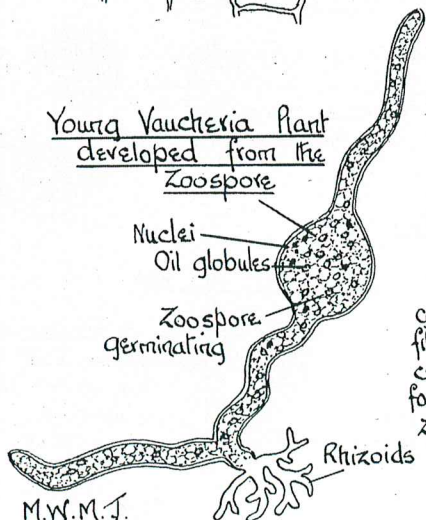 Young Vaucheria Plant
developed from the
Zoospore
Nuclei
Oil globules
Zoospore
germinating
Rhizoids
M.W.M.J.